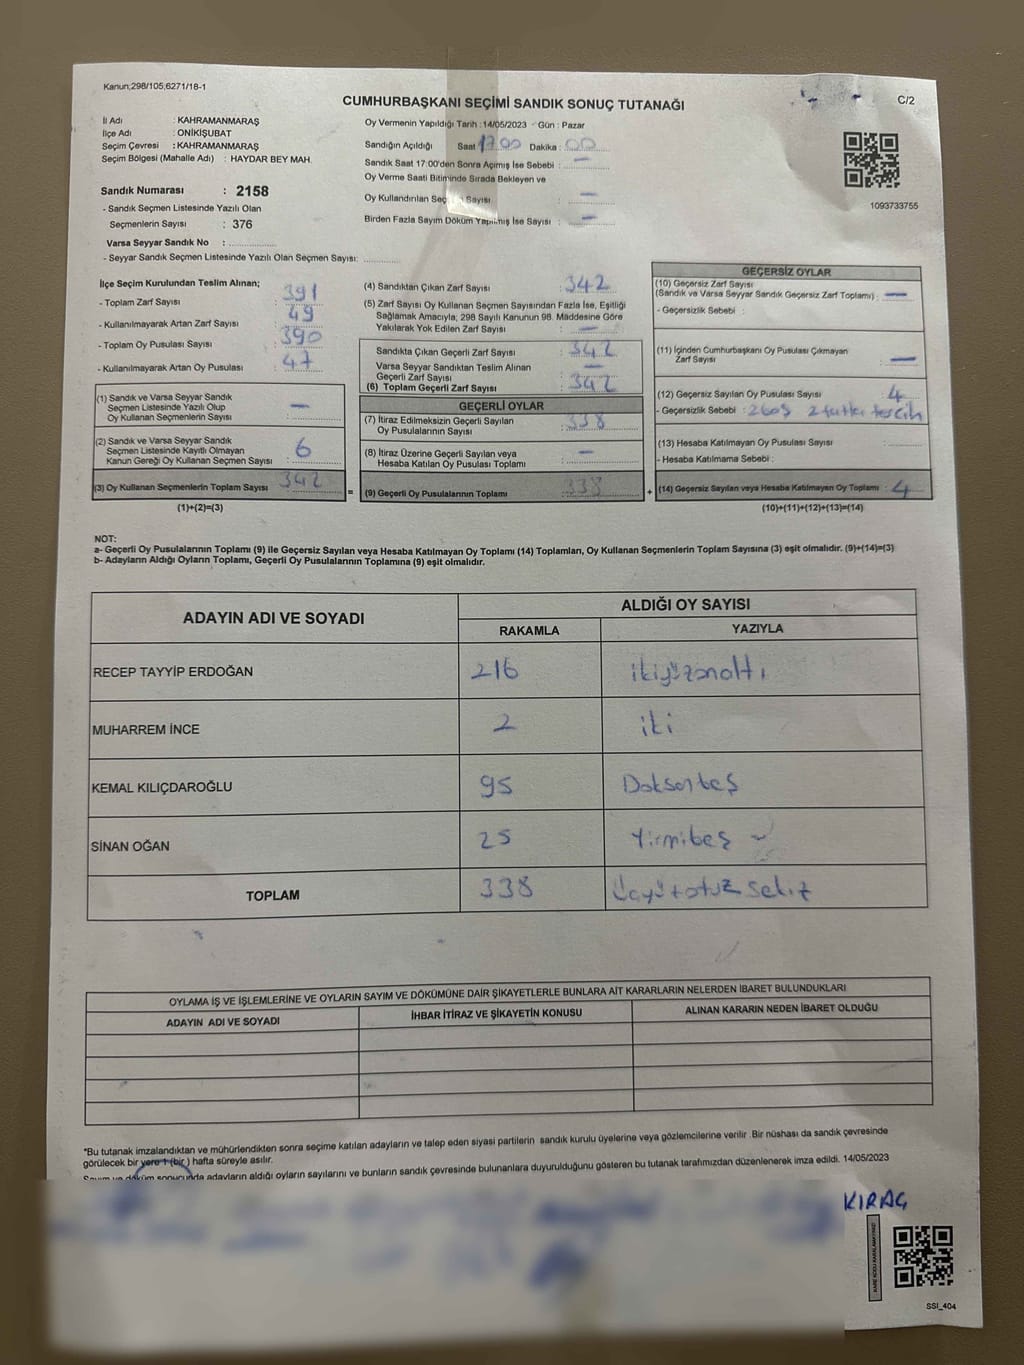 Kanun;298/105;6271/18-1
C/2
CUMHURBAŞKANI SEÇİMİ SANDIK SONUÇ TUTANAĞI
İl Adı : KAHRAMANMARAŞ
İlçe Adı : ONİKİŞUBAT
Seçim Çevresi : KAHRAMANMARAŞ
Seçim Bölgesi (Mahalle Adı) : HAYDAR BEY MAH.
Sandık Numarası : 2158
- Sandık Seçmen Listesinde Yazılı Olan
Seçmenlerin Sayısı : 376
Varsa Seyyar Sandık No :
- Seyyar Sandık Seçmen Listesinde Yazılı Olan Seçmen Sayısı:
Oy Vermenin Yapıldığı Tarih : 14/05/2023 - Gün : Pazar
Sandığın Açıldığı Saat 17.00 Dakika : 00
Sandık Saat 17:00'den Sonra Açımış İse Sebebi : —
Oy Verme Saati Bitiminde Sırada Bekleyen ve
Oy Kullandırılan Seçmen Sayısı : —
Birden Fazla Sayım Döküm Yapılmış İse Sayısı : —
1093733755
İlçe Seçim Kurulundan Teslim Alınan;
- Toplam Zarf Sayısı : 391
- Kullanılmayarak Artan Zarf Sayısı : 49
- Toplam Oy Pusulası Sayısı : 390
- Kullanılmayarak Artan Oy Pusulası : 47
(1) Sandık ve Varsa Seyyar Sandık
Seçmen Listesinde Yazılı Olup
Oy Kullanan Seçmenlerin Sayısı : —
(2) Sandık ve Varsa Seyyar Sandık
Seçmen Listesinde Kayıtlı Olmayan
Kanun Gereği Oy Kullanan Seçmen Sayısı : 6
(3) Oy Kullanan Seçmenlerin Toplam Sayısı : 342
(1)+(2)=(3)
(4) Sandıktan Çıkan Zarf Sayısı : 342
(5) Zarf Sayısı Oy Kullanan Seçmen Sayısından Fazla İse, Eşitliği
Sağlamak Amacıyla; 298 Sayılı Kanunun 98. Maddesine Göre
Yakılarak Yok Edilen Zarf Sayısı : —
Sandıkta Çıkan Geçerli Zarf Sayısı : 342
Varsa Seyyar Sandıktan Teslim Alınan
Geçerli Zarf Sayısı : —
(6) Toplam Geçerli Zarf Sayısı : 342
GEÇERLİ OYLAR
(7) İtiraz Edilmeksizin Geçerli Sayılan
Oy Pusulalarının Sayısı : 338
(8) İtiraz Üzerine Geçerli Sayılan veya
Hesaba Katılan Oy Pusulası Toplamı : —
= (9) Geçerli Oy Pusulalarının Toplamı : 338 +
GEÇERSİZ OYLAR
(10) Geçersiz Zarf Sayısı
(Sandık ve Varsa Seyyar Sandık Geçersiz Zarf Toplamı) : —
- Geçersizlik Sebebi :
(11) İçinden Cumhurbaşkanı Oy Pusulası Çıkmayan
Zarf Sayısı : —
(12) Geçersiz Sayılan Oy Pusulası Sayısı : 4
- Geçersizlik Sebebi : 2 boş 2 farklı tercih
(13) Hesaba Katılmayan Oy Pusulası Sayısı :
- Hesaba Katılmama Sebebi :
(14) Geçersiz Sayılan veya Hesaba Katılmayan Oy Toplamı : 4
(10)+(11)+(12)+(13)=(14)
NOT:
a- Geçerli Oy Pusulalarının Toplamı (9) ile Geçersiz Sayılan veya Hesaba Katılmayan Oy Toplamı (14) Toplamları, Oy Kullanan Seçmenlerin Toplam Sayısına (3) eşit olmalıdır. (9)+(14)=(3)
b- Adayların Aldığı Oyların Toplamı, Geçerli Oy Pusulalarının Toplamına (9) eşit olmalıdır.
ADAYIN ADI VE SOYADI
ALDIĞI OY SAYISI
RAKAMLA YAZIYLA
RECEP TAYYİP ERDOĞAN 216 ikiyüzonaltı
MUHARREM İNCE 2 iki
KEMAL KILIÇDAROĞLU 95 Doksanbeş
SİNAN OĞAN 25 Yirmibeş
TOPLAM 338 Üçyüzotuz sekiz
OYLAMA İŞ VE İŞLEMLERİNE VE OYLARIN SAYIM VE DÖKÜMÜNE DAİR ŞİKAYETLERLE BUNLARA AİT KARARLARIN NELERDEN İBARET BULUNDUKLARI
ADAYIN ADI VE SOYADI İHBAR İTİRAZ VE ŞİKAYETİN KONUSU ALINAN KARARIN NEDEN İBARET OLDUĞU
*Bu tutanak imzalandıktan ve mühürlendikten sonra seçime katılan adayların ve talep eden siyasi partilerin sandık kurulu üyelerine veya gözlemcilerine verilir .Bir nüshası da sandık çevresinde
görülecek bir yere 1 (bir ) hafta süreyle asılır.
Sayım ve döküm sonucunda adayların aldığı oyların sayılarını ve bunların sandık çevresinde bulunanlara duyurulduğunu gösteren bu tutanak tarafımızdan düzenlenerek imza edildi. 14/05/2023
KIRAÇ
SSI_404